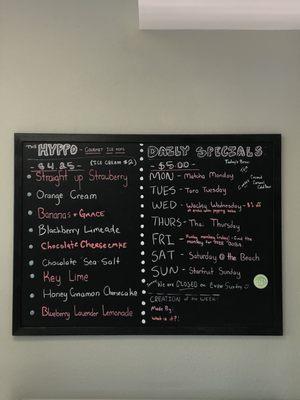 THE HYPPO - GOURMET ICE POPS
- $4.25 - (ICE CREAM $2)
Straight up Strawberry
Orange Cream
Bananas + Grace
Blackberry Limeade
Chocolate Cheesecake
Chocolate Sea Salt
Key Lime
Honey Cinnamon Cheesecake
Blueberry Lavender Lemonade
DAILY SPECIALS
- $5.00 -
Today's Brew:
MON - Matcha Monday
TUES - Taro Tuesday
WED - Wacky Wednesday - $1 off
THURS - Thai Thursday
FRI -
SAT - Saturday @ the Beach
SUN - Starfruit Sunday
We are CLOSED on
CREATION of the WEEK
Made By:
What is it?!